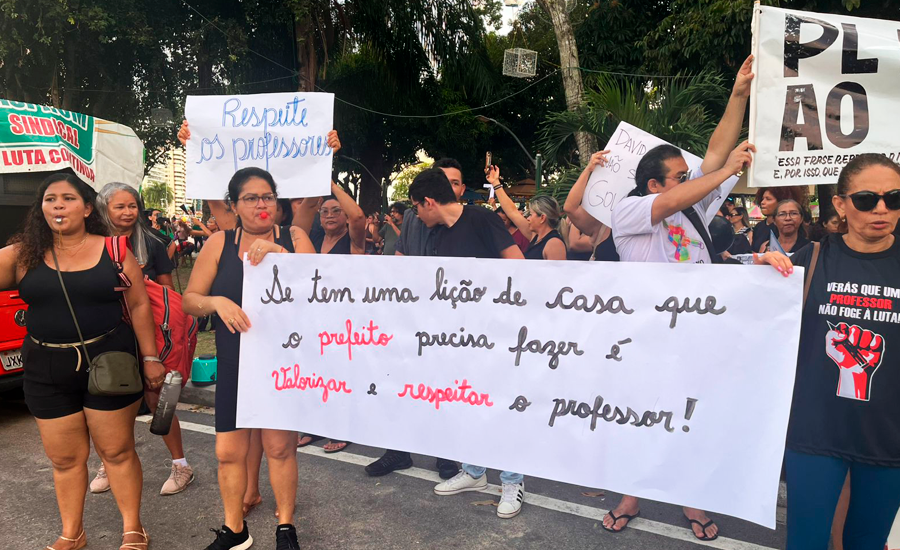 SINDICAL
LUTA CONTINUA
Respeite
os professores
DAVID
NÃO S
GOL
PL
AO
ESSA FRASE
E, POR ISSO, QUE
Se tem uma lição de casa que
o prefeito precisa fazer é
Valorizar e respeitar o professor!
VERÁS QUE UM
PROFESSOR
NÃO FOGE À LUTA!
JXK